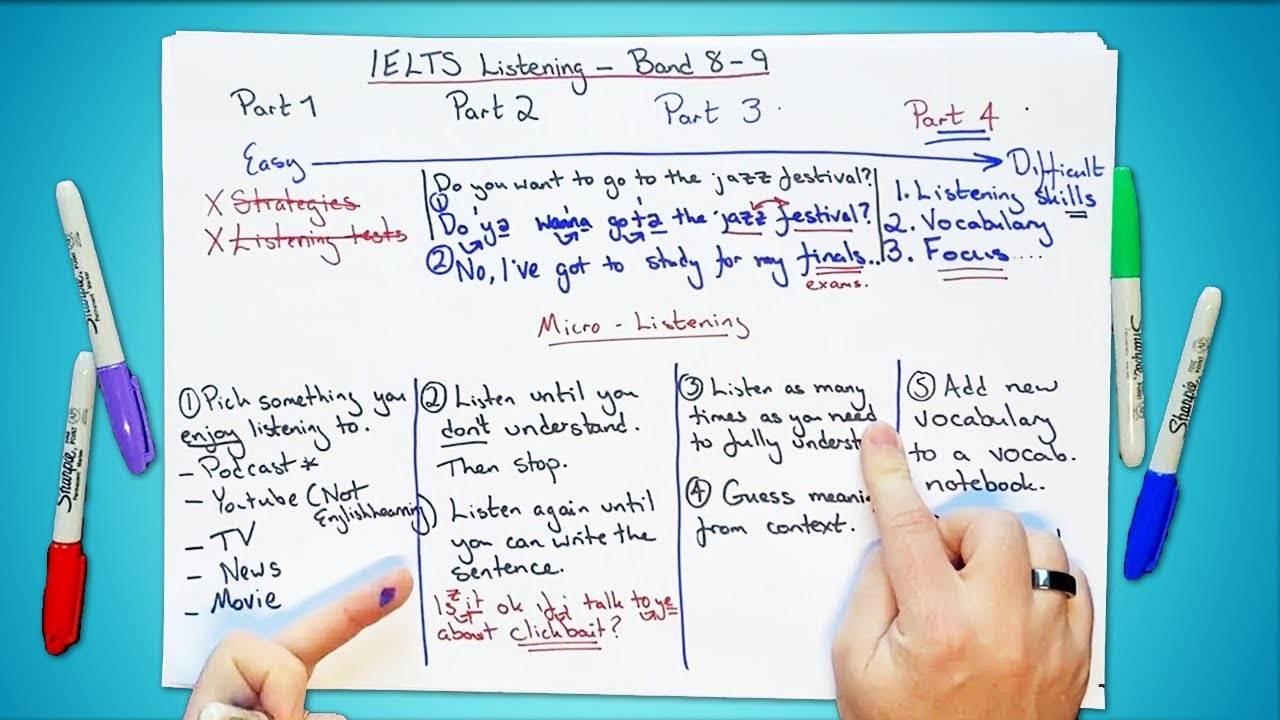 IELTS Listening - Band 8-9
Part 1 Part 2 Part 3 Part 4
Easy Difficult
X Strategies
X Listening tests
Do you want to go to the jazz festival?
① Do ya wanna go ta the jazz festival?
② No, I've got to study for my finals..
exams.
1. Listening skills
2. Vocabulary
3. Focus....
Micro-Listening
① Pick something you
enjoy listening to.
- Podcast *
- Youtube (Not
English learning)
- TV
- News
- Movie
② Listen until you
don't understand.
Then stop.
Listen again until
you can write the
sentence.
z
Is it ok if i talk to ye
about clickbait?
③ Listen as many
times as you need
to fully
④ Guess
from context.
⑤ Add new
vocabulary
to a vocab.
notebook.
Sharpie
Sharpie
Sharpie
Sharpie